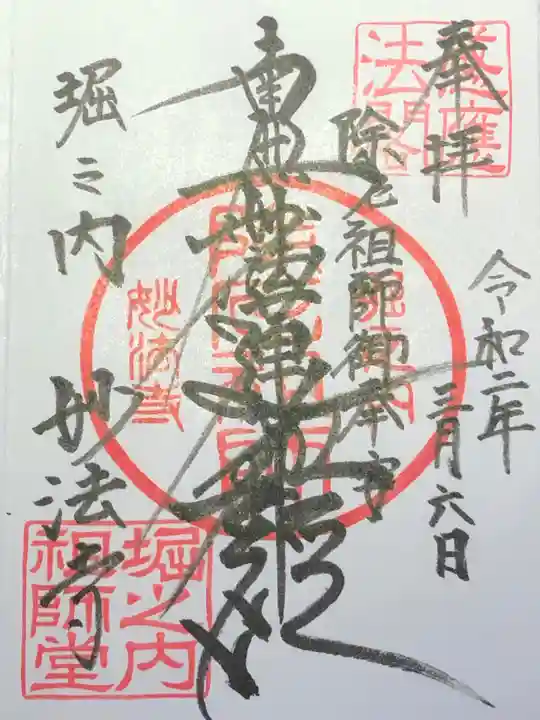 奉拝
令和二年
三月六日
除厄祖師御本宇
南無妙法蓮華経
堀之内 妙法寺
妙法寺
堀之内
祖師堂